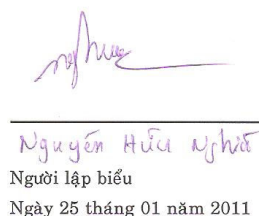 Nguyễn Hữu Nghĩa
Người lập biểu
Ngày 25 tháng 01 năm 2011